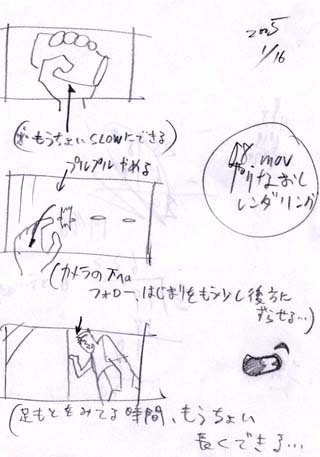 2005
1/16
(もうちょいSLOWにできる)
プルプル やめる
.mov
やりなおし
レンダリング
(カメラの下への
フォロー、はじまりをもう少し後方に
ずらせる…)
(足もとをみてる時間、もうちょい
長くできる…